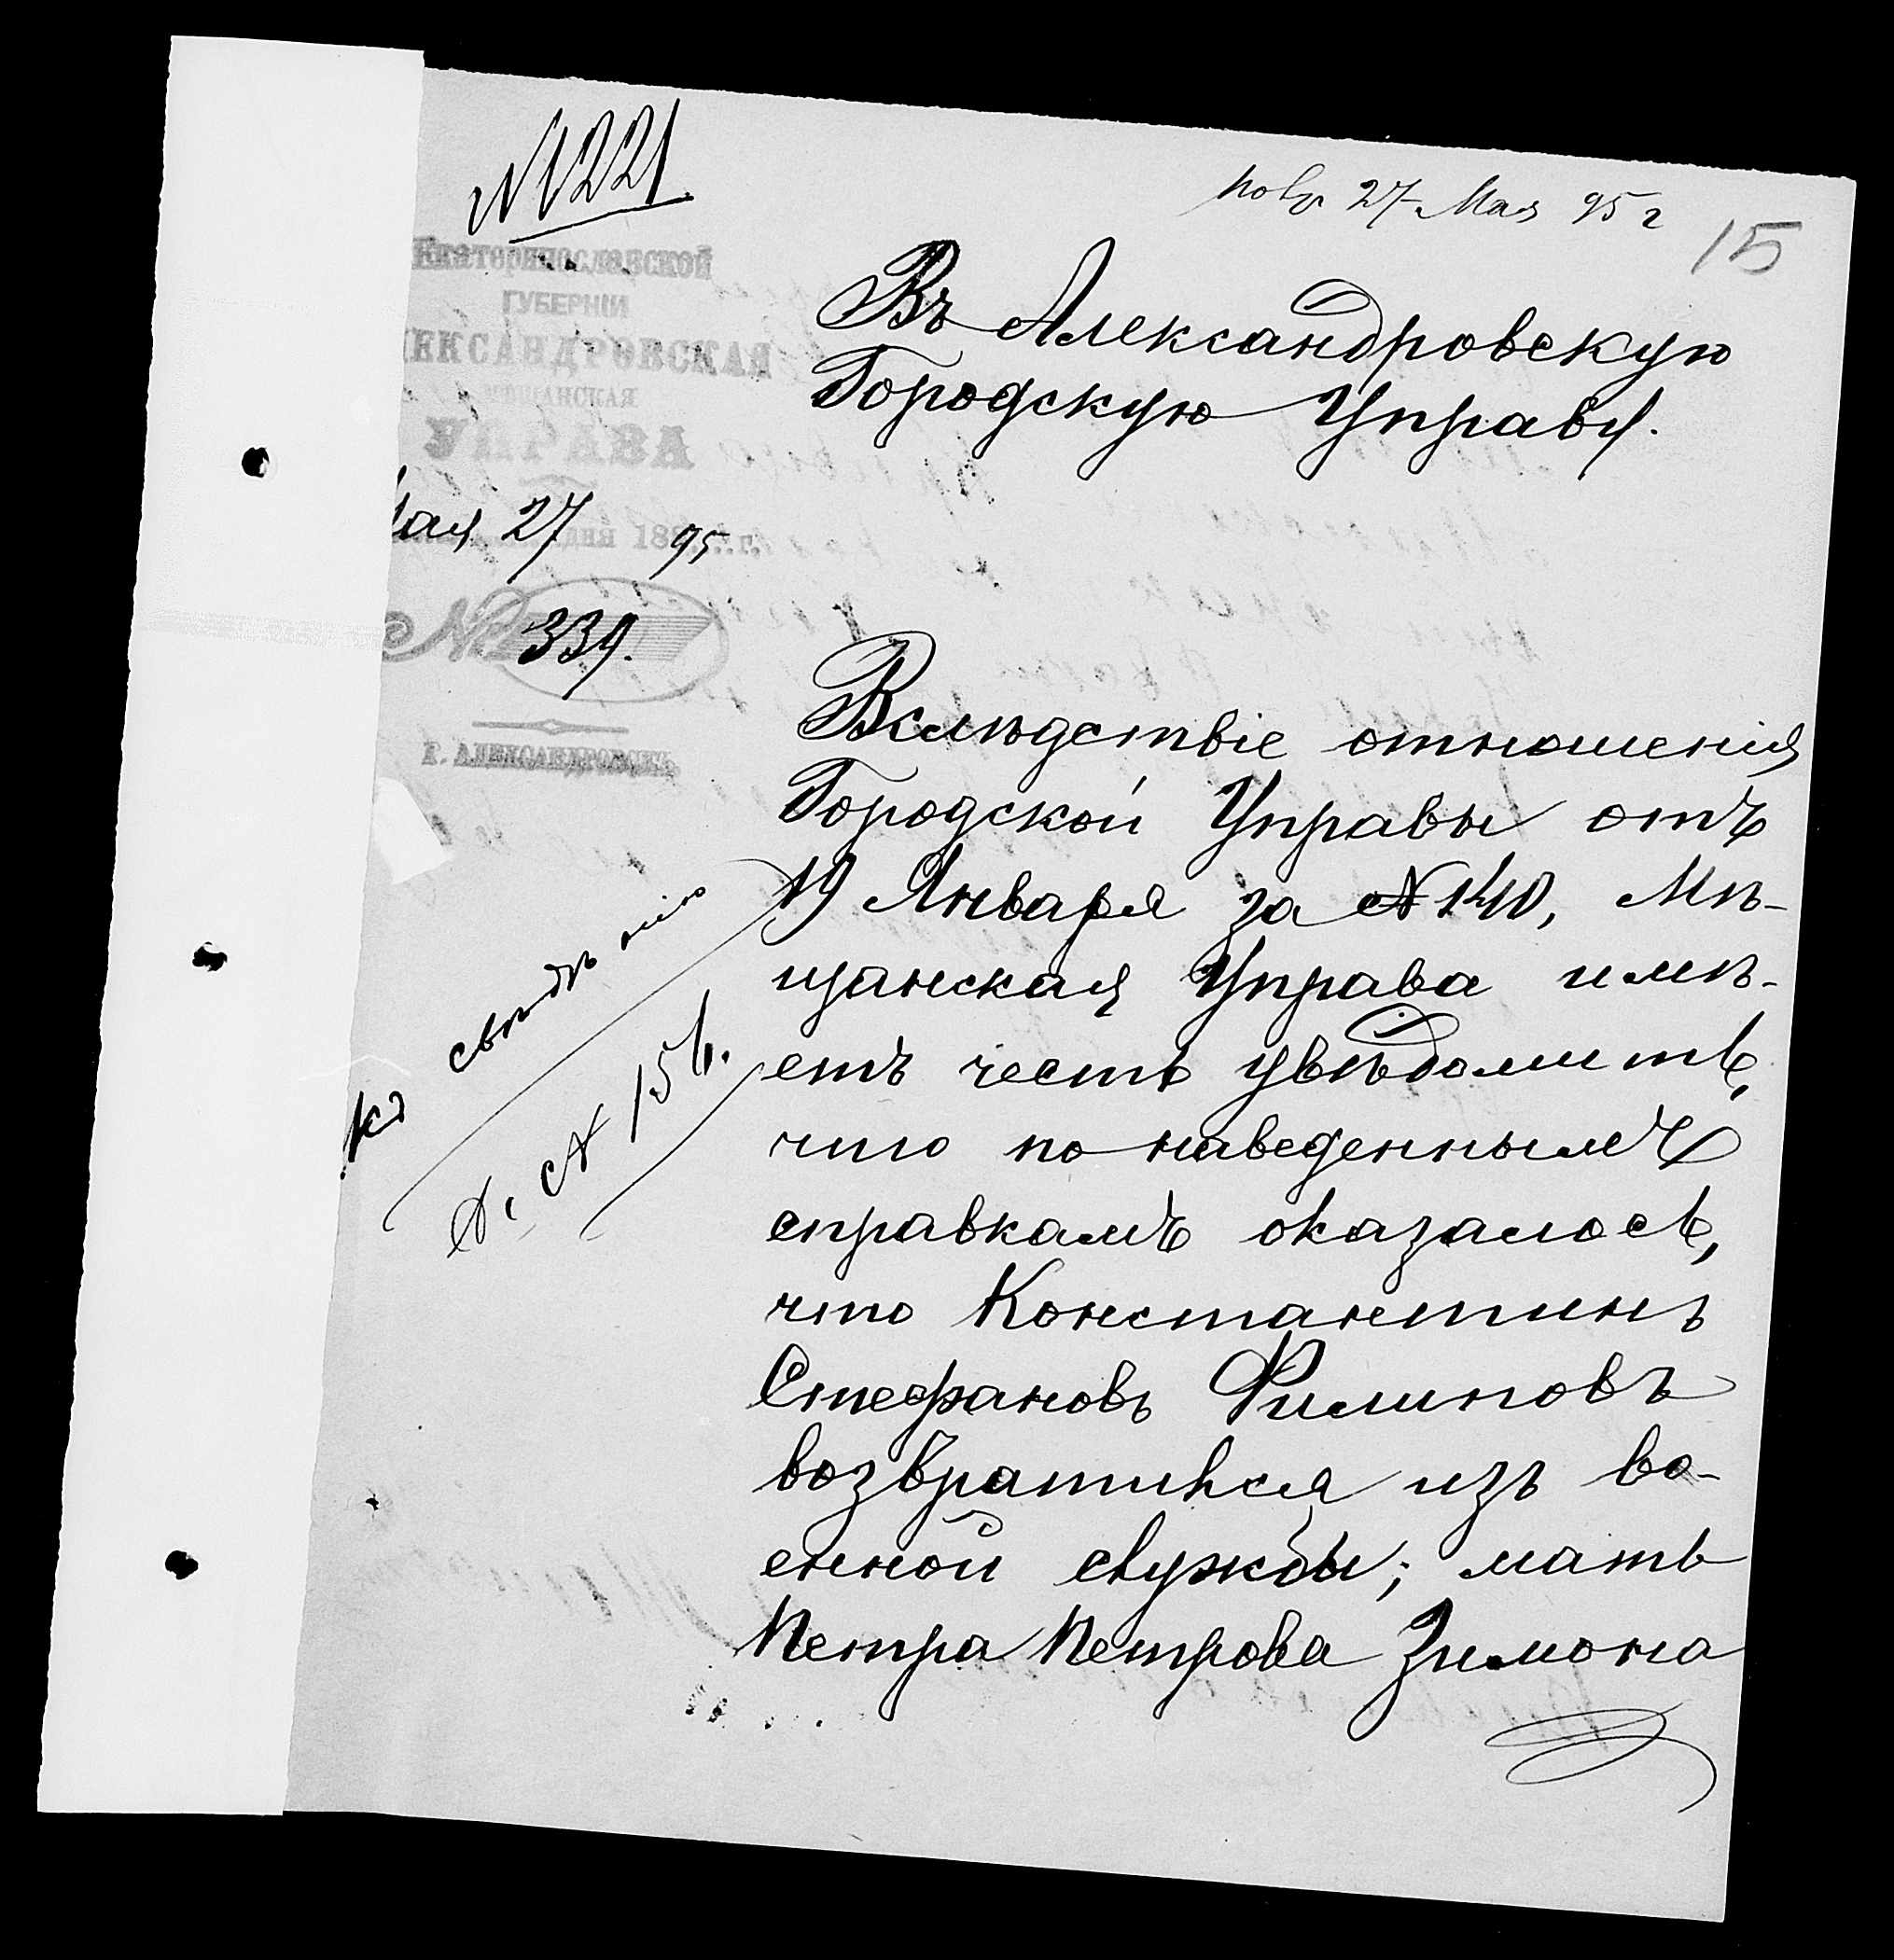 №1221.
27 Мая 95 г
15
Екатеринославской
ГУБЕРНІИ
ЛЕКСАНДРОВСКАЯ
МѢЩАНСКАЯ
УПРАВА
Мая 27 дня 1895 г.
№ 339.
Г. АЛЕКСАНДРОВСКЪ.
Въ Александровскую
Городскую Управу.
Вслѣдствіе отношенія
Городской Управы отъ
19 Января за № 140, Мѣ-
щанская Управа имѣ-
етъ честь увѣдомить,
что по наведеннымъ
справкамъ оказалось,
что Константинъ
Стефановъ Филиповъ
возвратился изъ во-
енной службы; мать
Петра Петрова Зимона
Къ свѣдѣнію
№ 156.